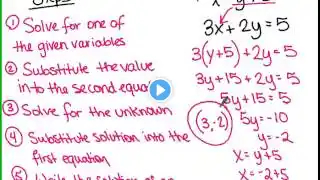 ① Solve for one of
the given variables
② Substitute the value
into the second equa
③ Solve for the unknown
④ Substitute solution into the
first equation
⑤
3x + 2y = 5
3(y+5) + 2y = 5
3y + 15 + 2y = 5
5y + 15 = 5
5y = -10
y = -2
x = y + 5
x = -2 + 5
(3, -2)